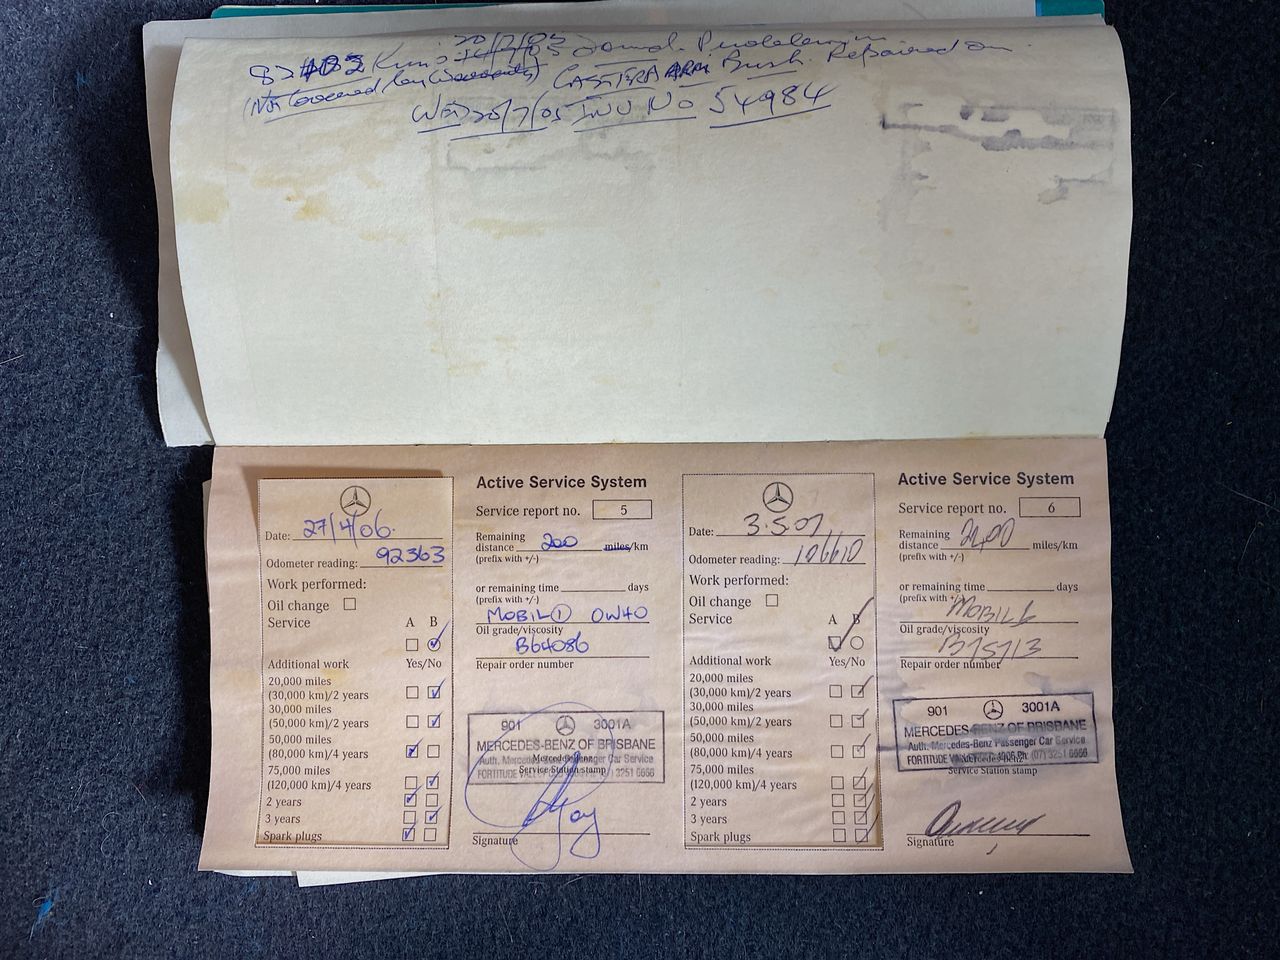 20/7/05
(Not Covered by Warranty) Bush Repaired on
Wed 20/7/05 INV No 54984
Active Service System
Service report no. 5
Date: 27/4/06.
Odometer reading: 92363
Remaining
distance 200 miles/km
(prefix with +/-)
Work performed:
Oil change
or remaining time days
(prefix with +/-)
Service A B
MOBIL 1 0W40
Oil grade/viscosity
B64086
Repair order number
Additional work Yes/No
20,000 miles
(30,000 km)/2 years
30,000 miles
(50,000 km)/2 years
50,000 miles
(80,000 km)/4 years
75,000 miles
(120,000 km)/4 years
2 years
3 years
Spark plugs
901 3001A
MERCEDES-BENZ OF BRISBANE
Auth. Mercedes-Benz Passenger Car Service
FORTITUDE 3251 6666
Service Station stamp
Signature
Active Service System
Service report no. 6
Date: 3.5.07
Odometer reading: 106610
Remaining
distance 2400 miles/km
(prefix with +/-)
Work performed:
Oil change
or remaining time days
(prefix with +/-)
Service A B
MOBIL 1
Oil grade/viscosity
B75713
Repair order number
Additional work Yes/No
20,000 miles
(30,000 km)/2 years
30,000 miles
(50,000 km)/2 years
50,000 miles
(80,000 km)/4 years
75,000 miles
(120,000 km)/4 years
2 years
3 years
Spark plugs
901 3001A
MERCEDES-BENZ OF BRISBANE
Auth. Mercedes-Benz Passenger Car Service
FORTITUDE 4006 Ph (07) 3251 6666
Service Station stamp
Signature